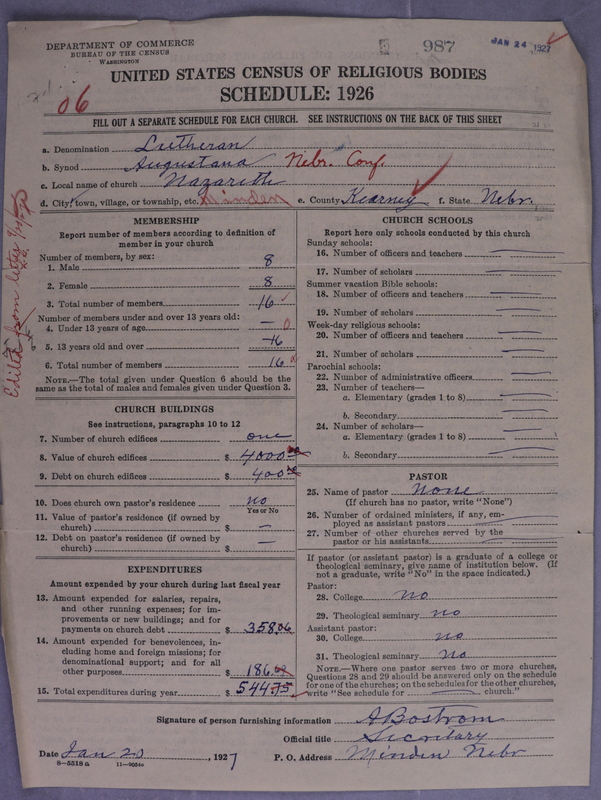 DEPARTMENT OF COMMERCE
BUREAU OF THE CENSUS
WASHINGTON
987
JAN 24 1927
UNITED STATES CENSUS OF RELIGIOUS BODIES
SCHEDULE: 1926
06
FILL OUT A SEPARATE SCHEDULE FOR EACH CHURCH. SEE INSTRUCTIONS ON THE BACK OF THIS SHEET
a. Denomination Lutheran
b. Synod Augustana Nebr. Conf.
c. Local name of church Nazareth
d. City, town, village, or township, etc. Minden e. County Kearney f. State Nebr.
Edited from letter
MEMBERSHIP
Report number of members according to definition of
member in your church
Number of members, by sex:
1. Male 8
2. Female 8
3. Total number of members 16
Number of members under and over 13 years old:
4. Under 13 years of age — 0
5. 13 years old and over 16
6. Total number of members 16
NOTE.—The total given under Question 6 should be the
same as the total of males and females given under Question 3.
CHURCH BUILDINGS
See instructions, paragraphs 10 to 12
7. Number of church edifices one
8. Value of church edifices $ 4000.00
9. Debt on church edifices $ 400.00
10. Does church own pastor's residence no
Yes or No
11. Value of pastor's residence (if owned by
church) $ —
12. Debt on pastor's residence (if owned by
church) $ —
EXPENDITURES
Amount expended by your church during last fiscal year
13. Amount expended for salaries, repairs,
and other running expenses; for im-
provements or new buildings; and for
payments on church debt $ 358.06
14. Amount expended for benevolences, in-
cluding home and foreign missions; for
denominational support; and for all
other purposes $ 186.
15. Total expenditures during year $ 544.75
CHURCH SCHOOLS
Report here only schools conducted by this church
Sunday schools:
16. Number of officers and teachers —
17. Number of scholars —
Summer vacation Bible schools:
18. Number of officers and teachers —
19. Number of scholars —
Week-day religious schools:
20. Number of officers and teachers —
21. Number of scholars —
Parochial schools:
22. Number of administrative officers —
23. Number of teachers—
a. Elementary (grades 1 to 8) —
b. Secondary —
24. Number of scholars—
a. Elementary (grades 1 to 8) —
b. Secondary —
PASTOR
25. Name of pastor None
(If church has no pastor, write "None")
26. Number of ordained ministers, if any, em-
ployed as assistant pastors —
27. Number of other churches served by the
pastor or his assistants —
If pastor (or assistant pastor) is a graduate of a college or
theological seminary, give name of institution below. (If
not a graduate, write "No" in the space indicated.)
Pastor:
28. College no
29. Theological seminary no
Assistant pastor:
30. College no
31. Theological seminary no
NOTE.—Where one pastor serves two or more churches,
Questions 28 and 29 should be answered only on the schedule
for one of the churches; on the schedules for the other churches,
write "See schedule for — church."
Signature of person furnishing information A Bostrom
Official title Secretary
Date Jan 20, 1927 P. O. Address Minden Nebr
8—5518a 11—9054a